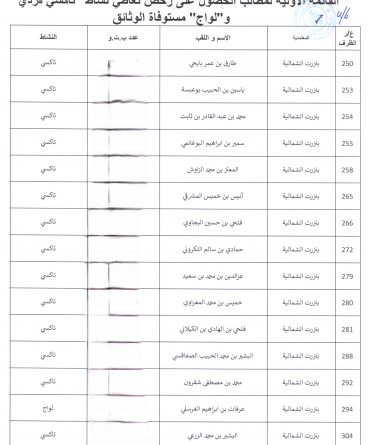 القائمة الأولية لمطالب الحصول على رخص تعاطي نشاط "تاكسي فردي"
و"لواج" مستوفاة الوثائق
4/6
ع/ر الظرف المعتمدية الاسم و اللقب عدد ب.ت.و النشاط
250 بنزرت الشمالية طارق بن عمر بايحي تاكسي
253 بنزرت الشمالية ياسين بن الحبيب بوعيسة تاكسي
254 بنزرت الشمالية محمد بن عبد القادر بن ثابت تاكسي
255 بنزرت الشمالية سمير بن ابراهيم البوغانمي تاكسي
258 بنزرت الشمالية المعتز بن محمد الزاوش تاكسي
265 بنزرت الشمالية أنيس بن خميس المشرقي تاكسي
266 بنزرت الشمالية فتحي بن حسين البجاوي تاكسي
272 بنزرت الشمالية حمادي بن سالم التكروني تاكسي
279 بنزرت الشمالية عزالدين بن محمد بن سعيد تاكسي
280 بنزرت الشمالية خميس بن محمد المعراوي تاكسي
281 بنزرت الشمالية فتحي بن الهادي بن الكيلاني تاكسي
288 بنزرت الشمالية البشير بن محمد الحبيب الصفاقسي تاكسي
292 بنزرت الشمالية محمد بن مصطفى شقرون تاكسي
294 بنزرت الشمالية عرفات بن ابراهيم الغرسلي لواج
304 بنزرت الشمالية البشير بن محمد الزرعي تاكسي